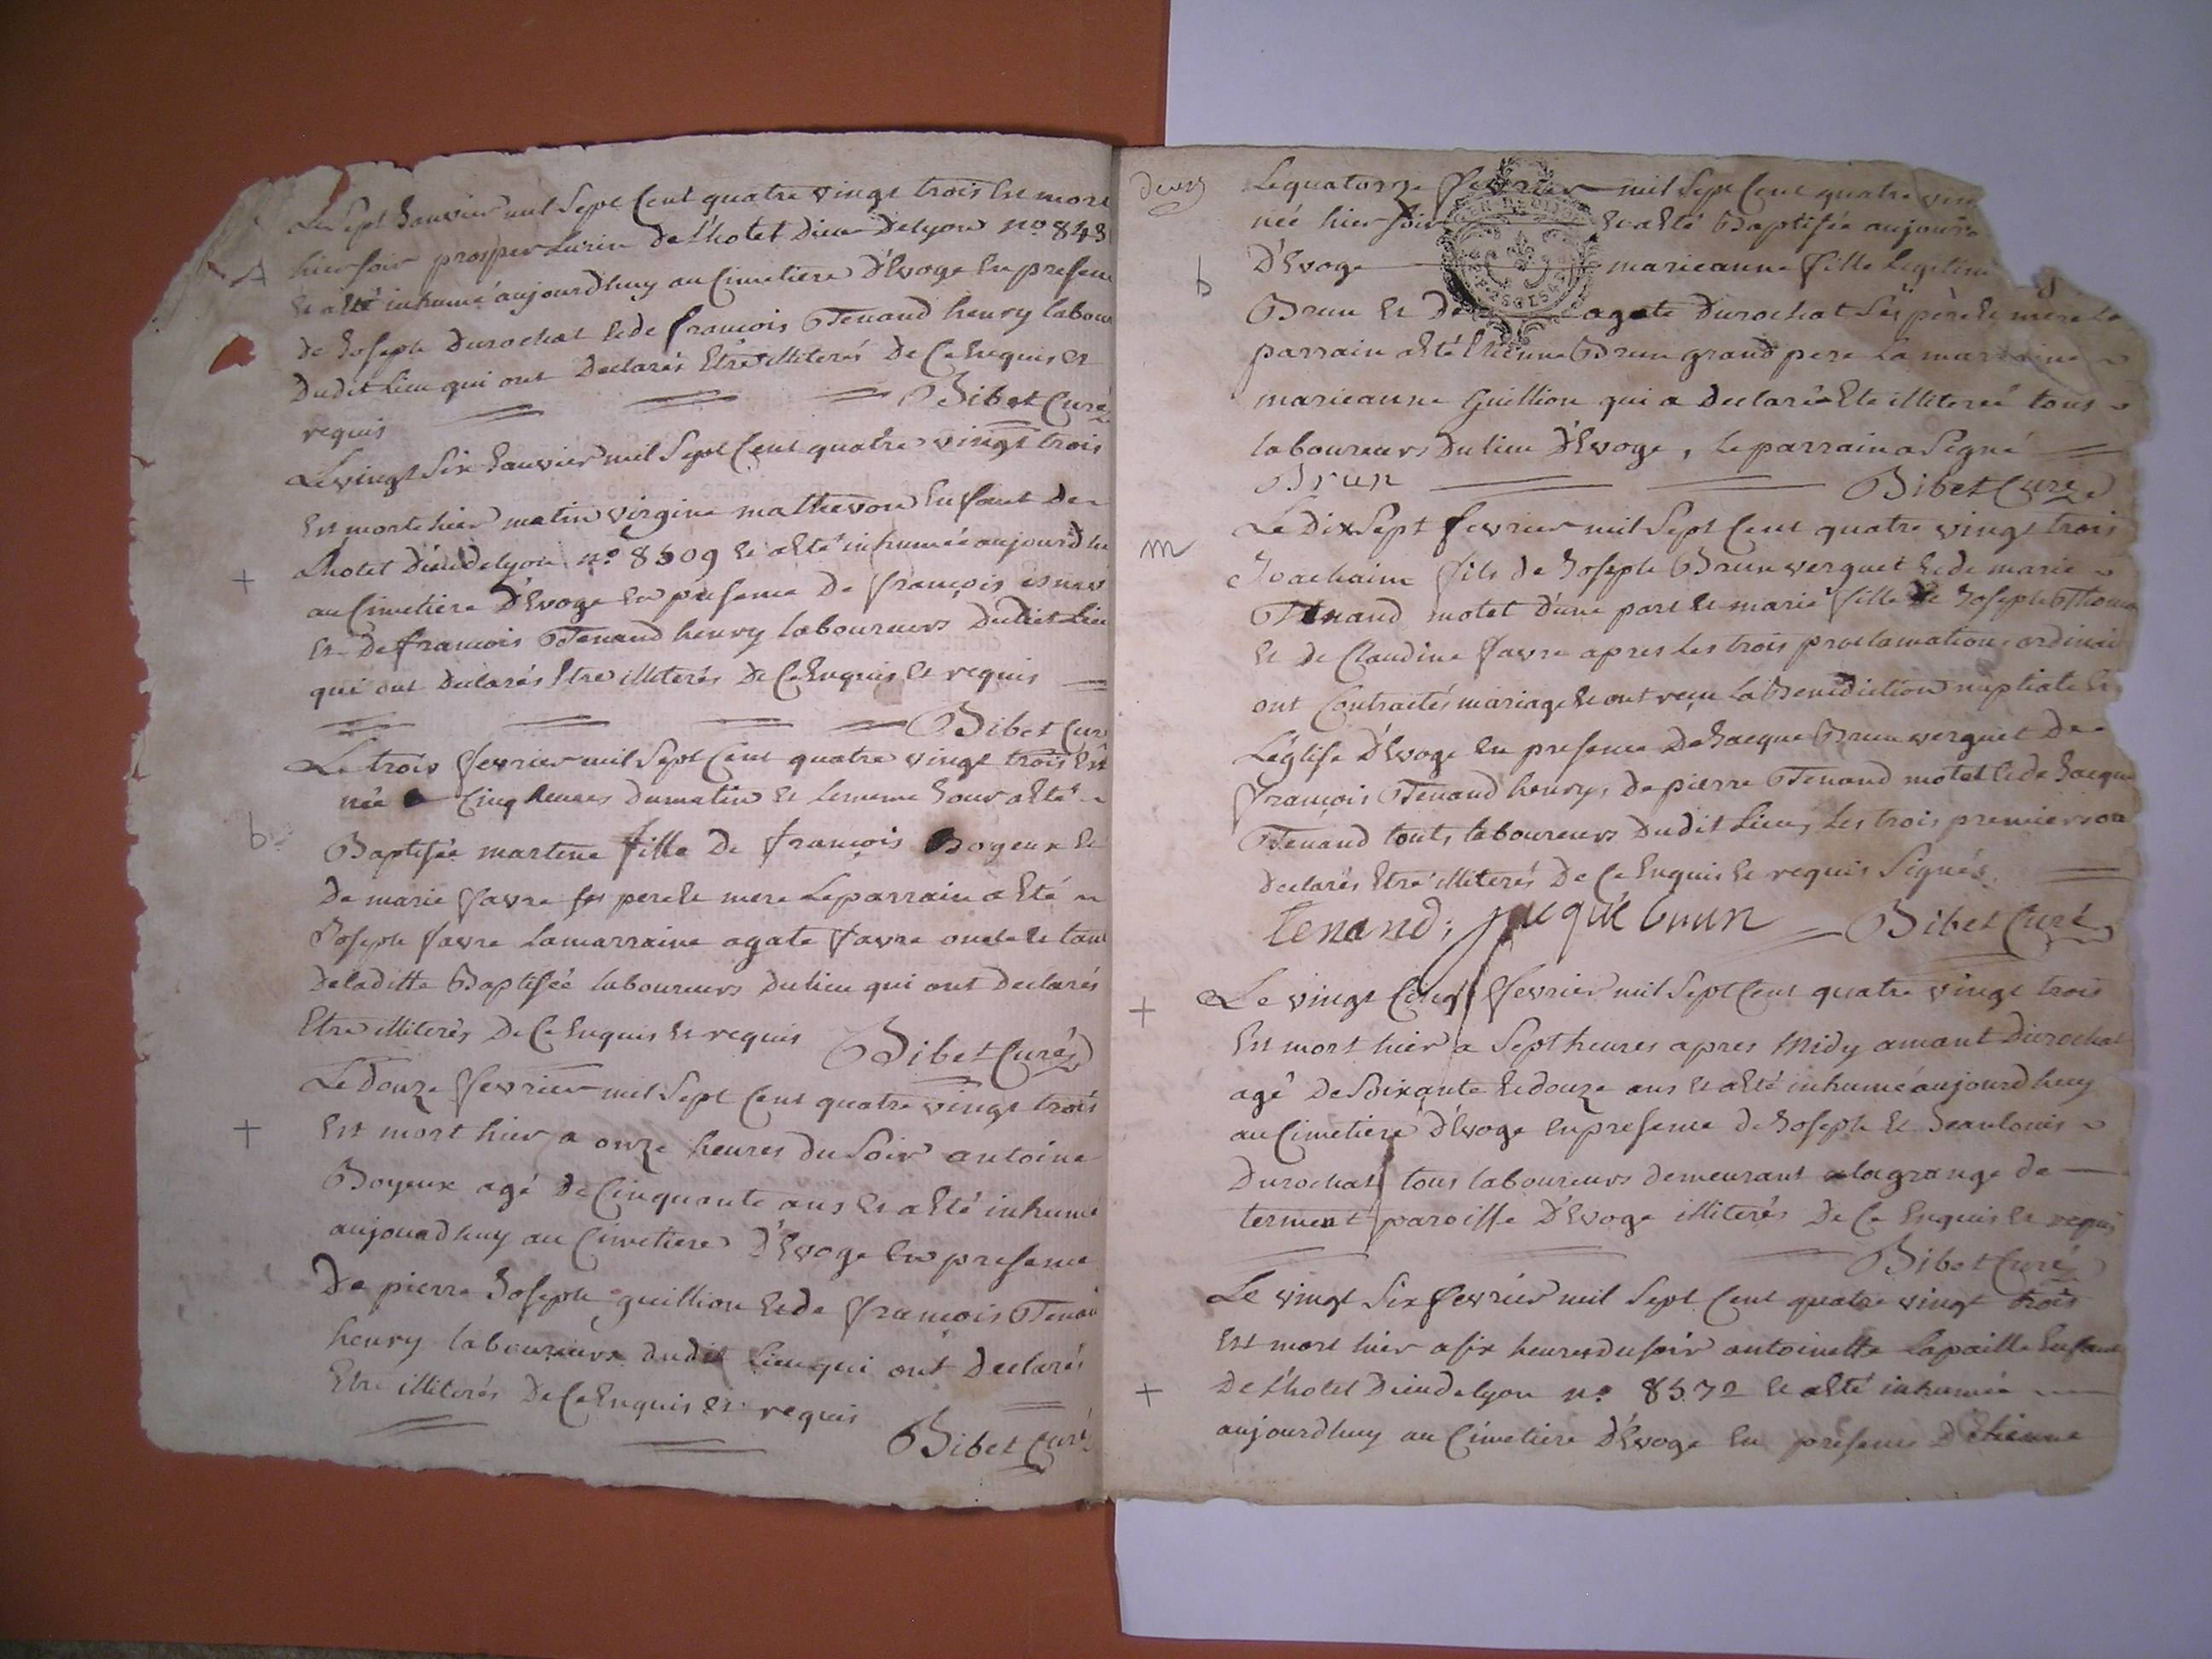 Le Sept Janvier mil Sept Cent quatre vingt trois Est mort
hier soir prosper Lurin De l'hotel Dieu Delyon no. 843
Et a Eté inhumé aujourdhuy au Cimetiere D'Evoge En presen
de Joseph Durochat Et de francois Tenand henry labour
Dudit Lieu qui ont Declarés Etre illiterés De Ce Enquis Et
requis
Bibet Curé
Le vingt Six Janvier mil Sept Cent quatre vingt trois
Est morte hier matin virgine mathevon Enfant De
L'hotel Dieu Delyon no. 8509 Et a Eté inhumée aujourdhu
au Cimetiere D'Evoge En presence De françois
Et De francois Tenand henry laboureurs Dudit Lieu
qui ont Declarés Etre illiterés De Ce Enquis Et requis
Bibet Cur
Le trois fevrier mil Sept Cent quatre vingt trois Est
née a Cinq heures Du matin Et le meme Jour a Eté
b
Baptisée martine fille De françois Boyeux Et
De marie favre ses pere Et mere Le parrain a Eté
Joseph favre La marraine agate favre oncle Et tant
De laditte Baptisée laboureurs Du lieu qui ont Declarés
Etre illiterés De Ce Enquis Et requis
Bibet Curé
Le Douze fevrier mil Sept Cent quatre vingt trois
+
Est mort hier a onze heures Du Soir antoine
Boyeux agé De Cinquante ans Et a Eté inhumé
aujourdhuy au Cimetiere D'Evoge En presence
De pierre Joseph guillion Et de françois Tenan
henry laboureurs dudit Lieu qui ont Declarés
Etre illiterés De Ce Enquis Et requis
Bibet Curé
Deux
Le quatorze fevrier mil Sept Cent quatre vin
née hier soir Et a Eté Baptisée aujourd
b
D'Evoge marieanne fille Legitim
Brun Et De agate Durochat Ses père Et mere Le
parrain a Eté Etienne Brun grand pere La marraine
marieanne Guillion qui a Declaré Etre illiteré tous
laboureurs Du lieu D'Evoge, le parrain a Signé
Brun
Bibet Curé
Le Dix Sept fevrier mil Sept Cent quatre vingt trois
m
Joachaim fils de Joseph Brun verguet Et de marie
Tenand motet d'une part Et marie fille De Joseph Thoma
Et De Claudine favre apres les trois proclamations ordinai
ont Contractés mariage Et ont reçu La Benediction nuptiale En
L'églife D'Evoge En presence De Jacque Brun verguet De
françois Tenand henry, De pierre Tenand motet Et de Jacque
Tenand touts laboureurs Dudit Lieu, Les trois premiers on
Declarés Etre illiterés De Ce Enquis Et requis Signés
tenand; jacque brun
Bibet Curé
+
Le vingt Cinq fevrier mil Sept Cent quatre vingt trois
Est mort hier a Sept heures apres Midy amant Durochat
agé De Soixante Et douze ans Et a Eté inhumé aujourdhuy
au Cimetiere D'Evoge En presence De Joseph Et Jean louis
Durochat tous laboureurs demeurant a la grange de
terment paroisse D'Evoge illiterés De Ce Enquis Et requis
Bibet Curé
Le vingt Six fevrier mil Sept Cent quatre vingt trois
Est mort hier a six heures du soir antoinette Lapaille Enfant
+
De L'hotel Dieu de lyon no. 8572 Et a Eté inhumée
aujourdhuy au Cimetiere D'Evoge En presence D'Etienne